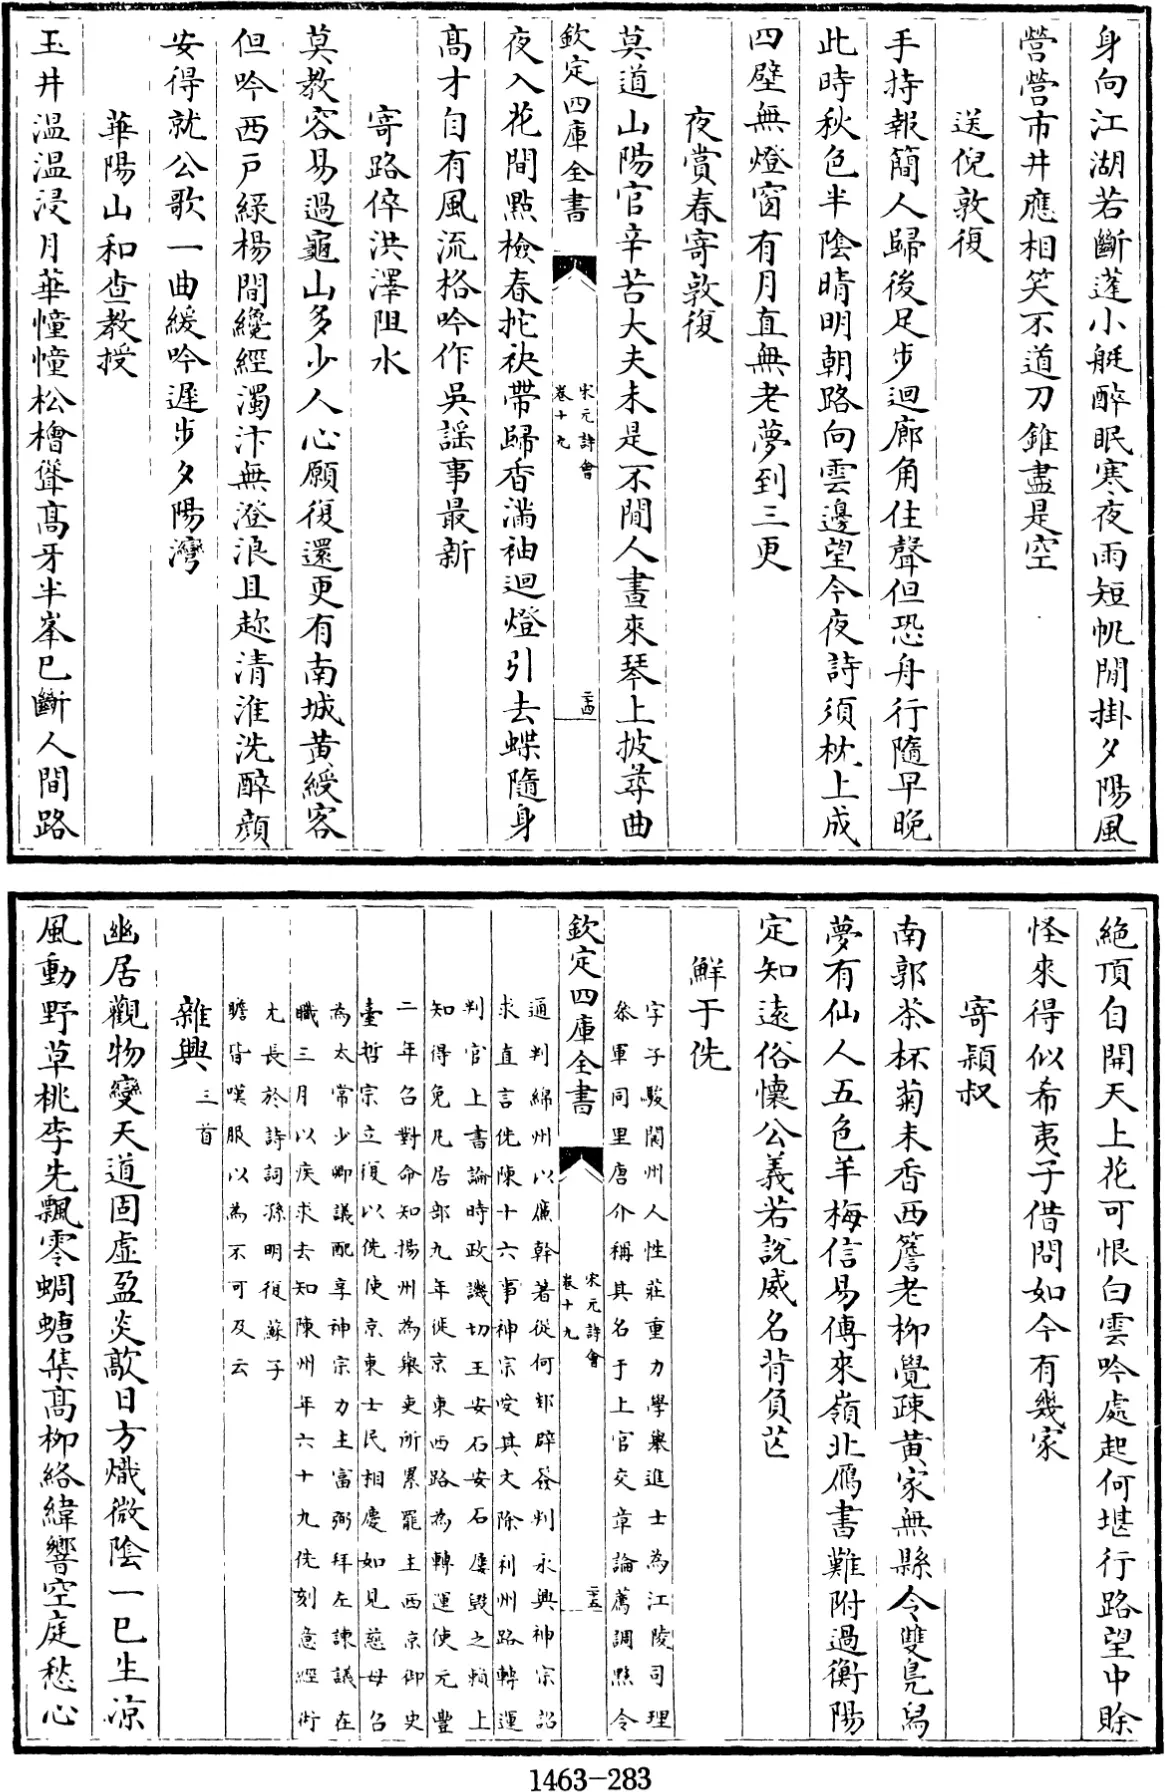 身向江湖若斷蓬小艇醉眠寒夜雨短帆閒掛夕陽風
營營市井應相笑不道刀錐盡是空
送倪敦復
手持報簡人歸後足步迴廊角住聲但恐舟行隨早晚
此時秋色半陰晴明朝路向雲邊望今夜詩須枕上成
四壁無燈窗有月直無老夢到三更
夜賞春寄敦復
莫道山陽官辛苦大夫未是不閒人晝來琴上披尋曲
欽定四庫全書
宋元詩會
卷十九
二十四
夜入花間點檢春拕袂帶歸香滿袖迴燈引去蝶隨身
髙才自有風流格吟作吳謡事最新
寄路倅洪澤阻水
莫教容易過龜山多少人心願復還更有南城黃綬客
但吟西戸緑楊間纔經濁汴無澄浪且趂清淮洗醉顔
安得就公歌一曲緩吟遲步夕陽灣
華陽山和查教授
玉井温温浸月華幢幢松檜聳髙牙半峯巳斷人間路
絶頂自開天上花可恨白雲吟處起何堪行路望中賖
怪來得似希夷子借問如今有幾家
寄穎叔
南郭茶杯菊未香西簷老栁覺疎黄家無縣令雙鳬舄
夢有仙人五色羊梅信易傳來嶺北鴈書難附過衡陽
定知遠俗懷公義若說威名背負芒
鮮于侁
字子駿閬州人性莊重力學舉進士為江陵司理
叅軍同里唐介稱其名于上官交章論薦調黟令
欽定四庫全書
宋元詩會
卷十九
二十五
通判綿州以廉幹著從何郯辟簽判永興神宗詔
求直言侁陳十六事神宗㫖其文除利州路轉運
判官上書論時政譏切王安石安石屢毁之賴上
知得免凡居部九年徙京東西路為轉運使元豐
二年召對命知揚州為舉吏所累罷主西京御史
臺哲宗立復以侁使京東士民相慶如見慈母召
為太常少卿議配享神宗力主富弼拜左諫議在
職三月以疾求去知陳州年六十九侁刻意經術
尤長於詩詞孫明復蘇子
瞻皆嘆服以為不可及云
雜興三首
幽居觀物變天道固虛盈炎歊日方熾微陰一巳生凉
風動野草桃李先飄零蜩螗集髙栁絡緯響空庭愁心
1463—283